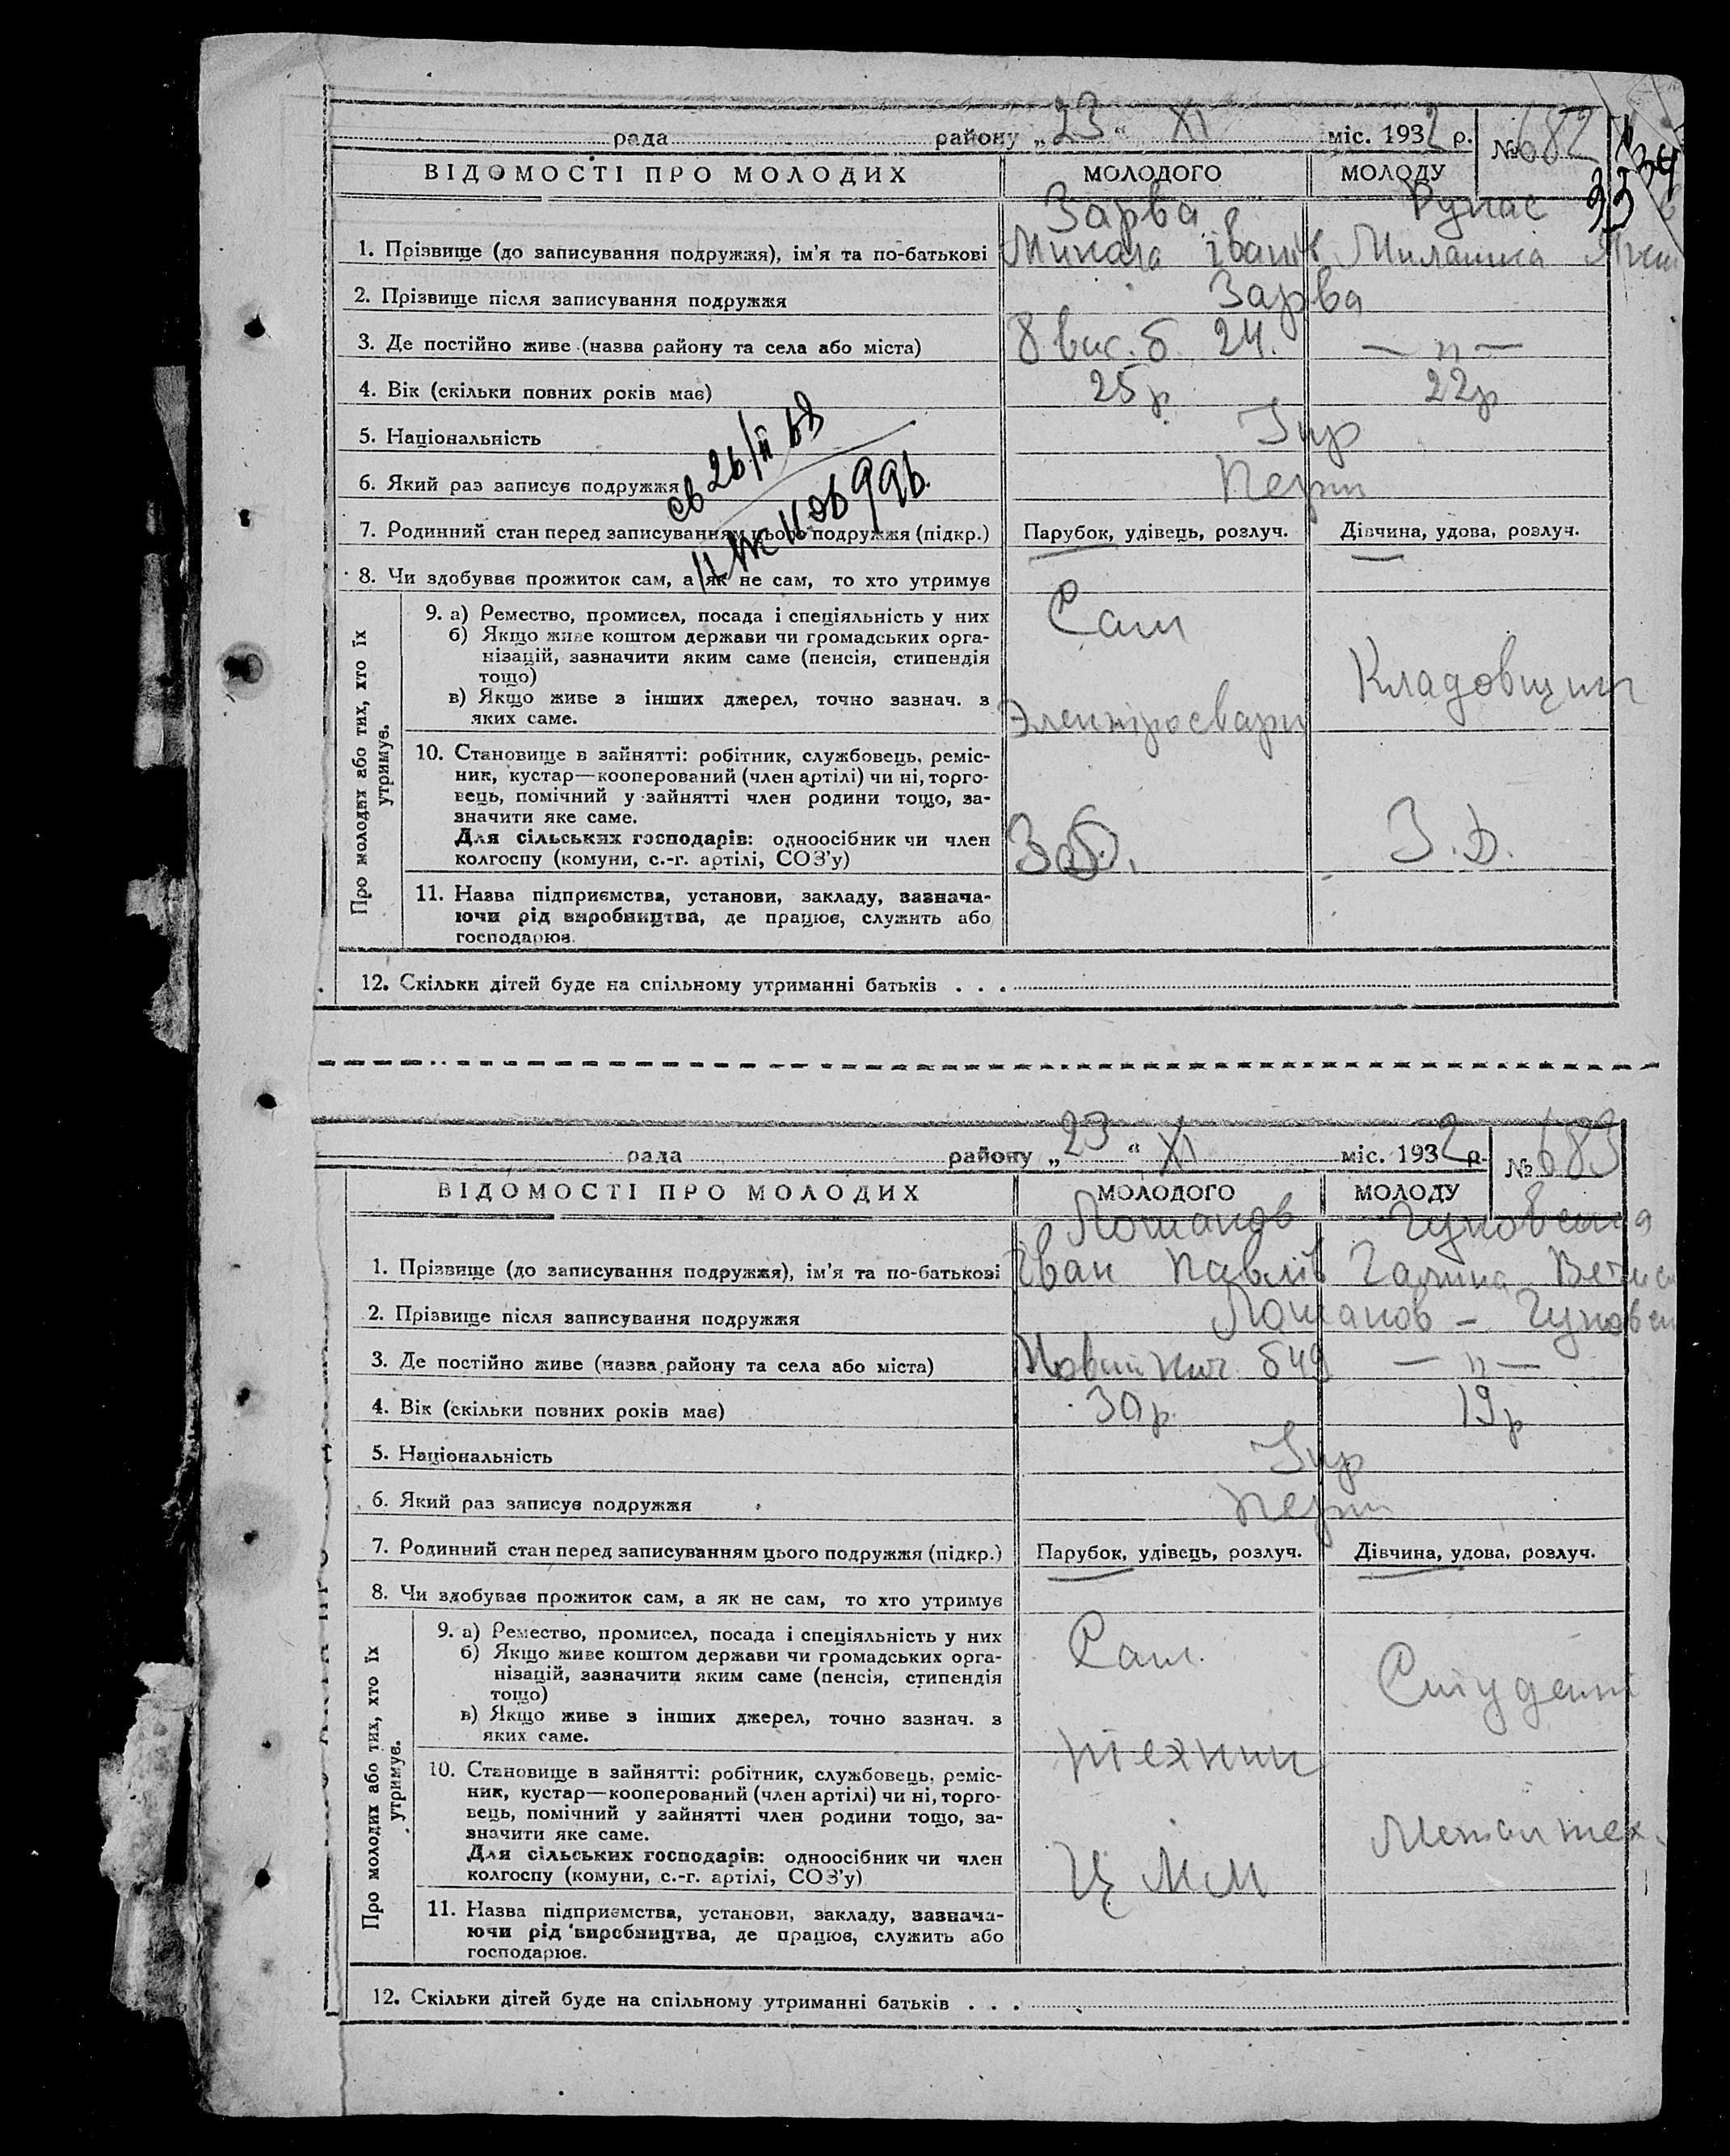 рада района „23“ XI міс. 1932 р. № 682
ВІДОМОСТІ ПРО МОЛОДИХ МОЛОДОГО МОЛОДУ
Зарва
1. Прізвище (до записування подружжя), ім'я та по-батькові Микола Іванів
2. Прізвище після записування подружжя Зарва
3. Де постійно живе (назва району та села або міста) 8 вис. б. 24. — „ —
4. Вік (скільки повних років має) 25 р 22 р
5. Національність Укр
6. Який раз записує подружжя Перш
7. Родинний стан перед записуванням цього подружжя (підкр.) Парубок, удівець, розлуч. Дівчина, удова, розлуч.
8. Чи здобуває прожиток сам, а як не сам, то хто утримує
Про молодих або тих, хто їх утримує.
9. а) Ремество, промисел, посада і спеціяльність у них Сам
б) Якщо живе коштом держави чи громадських орга-
нізацій, зазначити яким саме (пенсія, стипендія Кладовщик
тощо)
в) Якщо живе з інших джерел, точно зазнач. з
яких саме. Электросварщ
10. Становище в зайнятті: робітник, службовець, реміс-
ник, кустар—кооперований (член артілі) чи ні, торго-
вець, помічний у зайнятті член родини тощо, за-
значити яке саме.
Для сільських господарів: одноосібник чи член
колгоспу (комуни, с.-г. артілі, СОЗ'у)
11. Назва підприємства, установи, закладу, зазнача-
ючи рід виробництва, де працює, служить або
господарює.
12. Скільки дітей буде на спільному утриманні батьків . . .
рада району „23“ XI міс. 1932 р. № 683
ВІДОМОСТІ ПРО МОЛОДИХ МОЛОДОГО МОЛОДУ
1. Прізвище (до записування подружжя), ім'я та по-батькові Іван Павлів Галина
2. Прізвище після записування подружжя
3. Де постійно живе (назва району та села або міста) — „ —
4. Вік (скільки повних років має) 30 р. 19 р
5. Національність Укр
6. Який раз записує подружжя Перш
7. Родинний стан перед записуванням цього подружжя (підкр.) Парубок, удівець, розлуч. Дівчина, удова, розлуч.
8. Чи здобуває прожиток сам, а як не сам, то хто утримує
Про молодих або тих, хто їх утримує.
9. а) Ремество, промисел, посада і спеціяльність у них Сам.
б) Якщо живе коштом держави чи громадських орга-
нізацій, зазначити яким саме (пенсія, стипендія Студент
тощо)
в) Якщо живе з інших джерел, точно зазнач. з
яких саме. технік
10. Становище в зайнятті: робітник, службовець, реміс-
ник, кустар—кооперований (член артілі) чи ні, торго-
вець, помічний у зайнятті член родини тощо, за-
значити яке саме. Метал тех.
Для сільських господарів: одноосібник чи член
колгоспу (комуни, с.-г. артілі, СОЗ'у) Ц М М
11. Назва підприємства, установи, закладу, зазнача-
ючи рід виробництва, де працює, служить або
господарює.
12. Скільки дітей буде на спільному утриманні батьків . . .